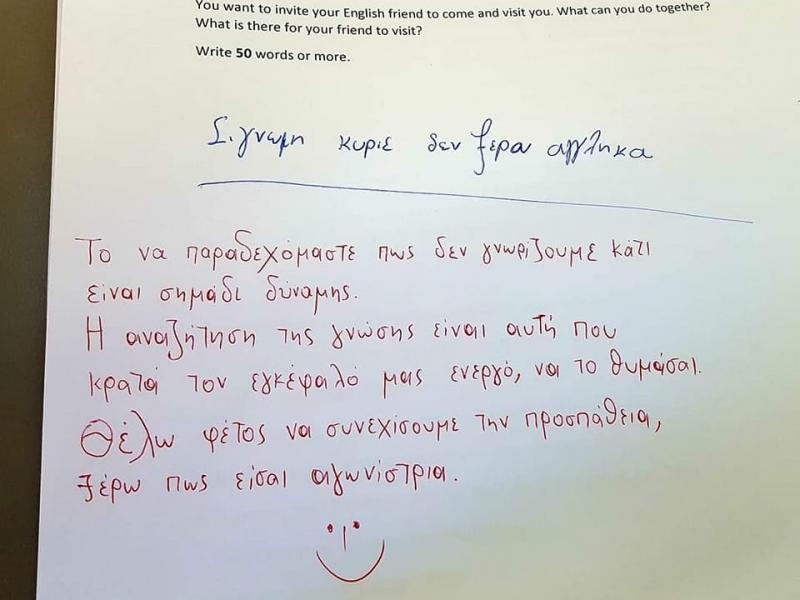 You want to invite your English friend to come and visit you. What can you do together?
What is there for your friend to visit?
Write 50 words or more.
Σ.γνωμη κυριε δεν ξερα αγγληκα
Το να παραδεχόμαστε πως δεν γνωρίζουμε κάτι
είναι σημάδι δύναμης.
Η αναζήτηση της γνώσης είναι αυτή που
κρατά τον εγκέφαλό μας ενεργό, να το θυμάσαι.
Θέλω φέτος να συνεχίσουμε την προσπάθεια,
ξέρω πως είσαι αγωνίστρια.